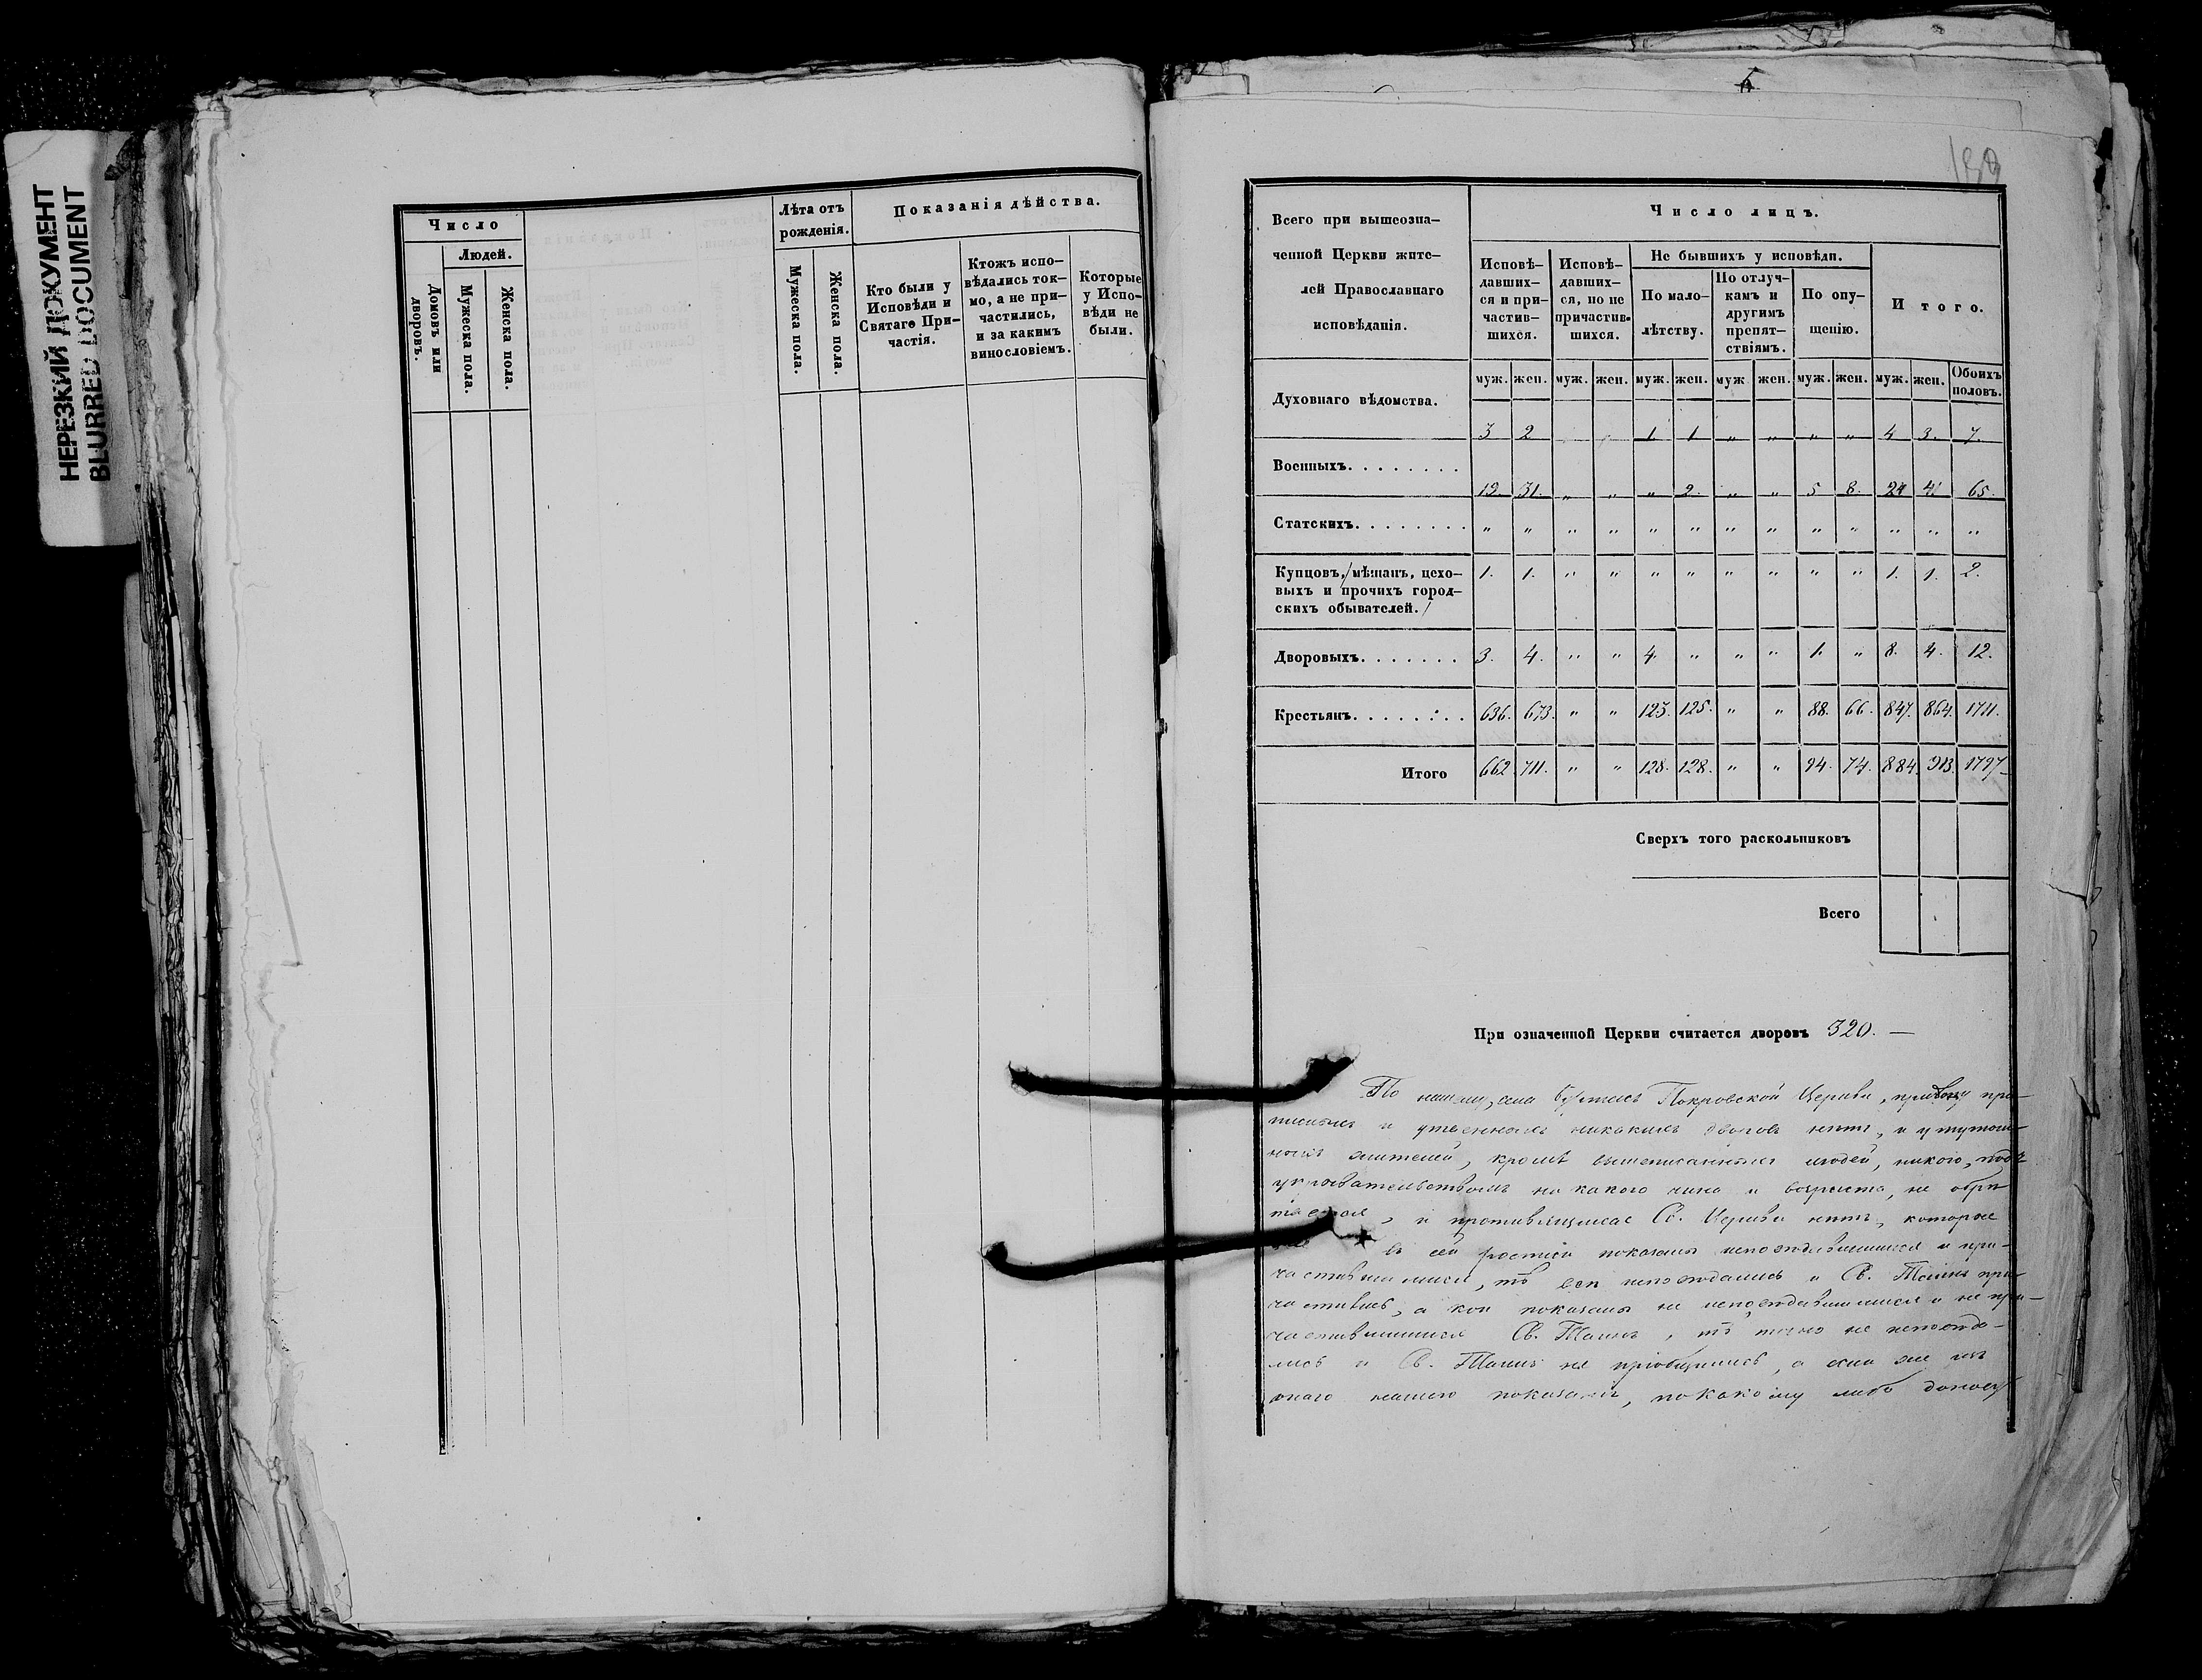 НЕРЕЗКИЙ ДОКУМЕНТ
BLURRED DOCUMENT
Число
Людей.
Домовъ или дворовъ.
Мужеска пола.
Женска пола.
Лѣта отъ рожденія.
Мужеска пола.
Женска пола.
Показанія дѣйства.
Кто были у Исповѣди и Святаго Причастія.
Ктожъ исповѣдались токмо, а не причастились, и за какимъ винословіемъ.
Которые у Исповѣди не были.
Всего при вышеозна-
ченной Церкви жите-
лей Православнаго
исповѣданія.
Число лицъ.
Исповѣ-
давших-
ся и при-
частив-
шихся.
Исповѣ-
давших-
ся, но не
причастив-
шихся.
Не бывшихъ у исповѣди.
По мало-
лѣтству.
По отлуч-
камъ и
другимъ
препят-
ствіямъ.
По опу-
щенію.
Итого.
муж. жен. муж. жен. муж. жен. муж жен. муж. жен. муж. жен. Обоихъ половъ.
Духовнаго вѣдомства. 3 2 1 1 „ „ „ „ 4 3. 7.
Военныхъ. . . . . . . . 19. 31. „ „ „ 2. „ „ 5 8. 24 41 65.
Статскихъ. . . . . . . . „ „ „ „ „ „ „ „ „ „ „ „ „
Купцовъ,/мѣщанъ, цехо-
выхъ и прочихъ город-
скихъ обывателей./ 1. 1. „ „ „ „ „ „ „ „ 1. 1. 2.
Дворовыхъ. . . . . . . 3. 4. „ „ 4. „ „ „ 1. „ 8. 4. 12.
Крестьянъ. . . . . . . 636. 673. „ „ 123. 125. „ „ 88. 66. 847. 864. 1711.
Итого 662 711. „ „ 128. 128. „ „ 94. 74. 884. 913. 1797
Сверхъ того раскольниковъ
Всего
При означенной Церкви считается дворовъ 320. —
По нашему, Покровской Церкви, приходу при-
писныхъ и утаенныхъ никакихъ дворовъ нѣтъ, и у тутош-
нихъ жителей, кромѣ вышеписанныхъ людей, никого, подъ
укрывательствомъ ни какого чина и возраста, не обрѣ
тается, и противящихся Св. Церкви нѣтъ, которые
въ сей росписи показаны исповѣдавшимися и при-
частившимися, тѣ всѣ исповѣдались и Св. Таинъ при
частились, а кои показаны не исповѣдавшимися и не при-
частившимися Св. Таинъ, тѣ точно не исповѣда-
лись и Св. Таинъ не пріобщились, а если же изъ
онаго нашего показанія, по какому либо доносу